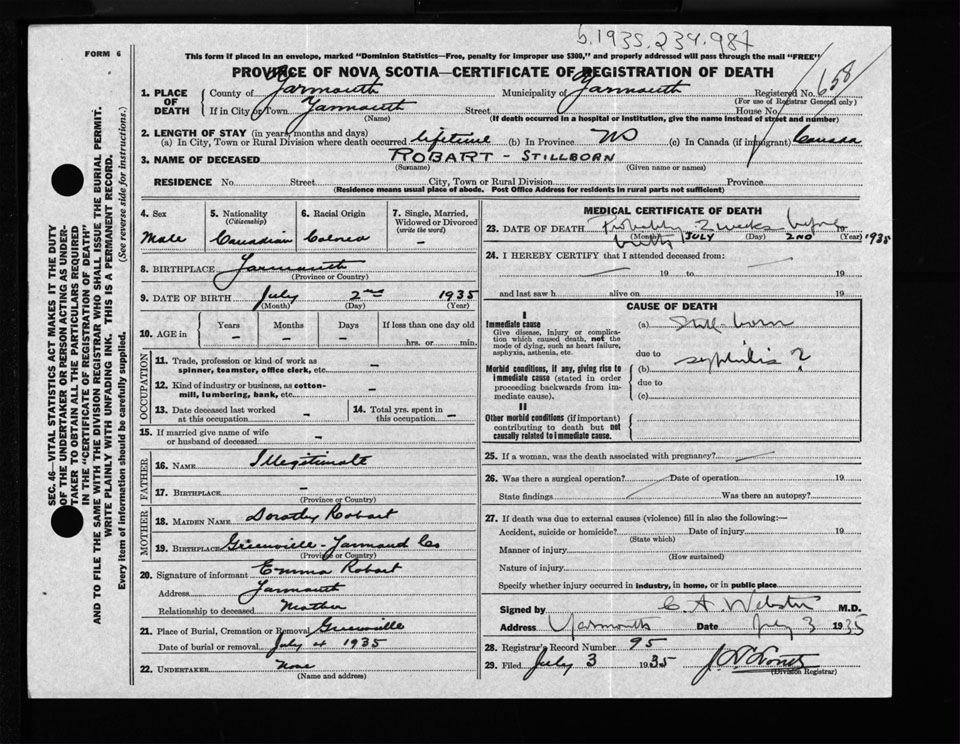 b.1935.234.987
FORM 6
This form if placed in an envelope, marked "Dominion Statistics—Free, penalty for improper use $300," and properly addressed will pass through the mail "FREE"
PROVINCE OF NOVA SCOTIA—CERTIFICATE OF REGISTRATION OF DEATH
1. PLACE OF DEATH County of Yarmouth Municipality of Yarmouth Registered No. 658
(For use of Registrar General only)
If in City or Town Yarmouth Street House No.
(Name) (If death occurred in a hospital or institution, give the name instead of street and number)
2. LENGTH OF STAY (in years, months and days)
(a) In City, Town or Rural Division where death occurred lifetime (b) In Province NS (c) In Canada (if immigrant) Canada
3. NAME OF DECEASED ROBART - STILLBORN
(Surname) (Given name or names)
RESIDENCE No. Street City, Town or Rural Division Province
(Residence means usual place of abode. Post Office Address for residents in rural parts not sufficient)
4. Sex Male
5. Nationality (Citizenship) Canadian
6. Racial Origin Colored
7. Single, Married, Widowed or Divorced (write the word) –
8. BIRTHPLACE Yarmouth
(Province or Country)
9. DATE OF BIRTH July 2nd 1935
(Month) (Day) (Year)
10. AGE in Years – Months – Days – If less than one day old hrs. or min.
OCCUPATION
11. Trade, profession or kind of work as spinner, teamster, office clerk, etc. –
12. Kind of industry or business, as cotton-mill, lumbering, bank, etc. –
13. Date deceased last worked at this occupation –
14. Total yrs. spent in this occupation –
15. If married give name of wife or husband of deceased –
FATHER
16. NAME Illegitimate
17. BIRTHPLACE –
(Province or Country)
MOTHER
18. MAIDEN NAME Dorothy Robart
19. BIRTHPLACE Greenville - Yarmouth Co
(Province or Country)
20. Signature of informant Emma Robart
Address Yarmouth
Relationship to deceased Mother
21. Place of Burial, Cremation or Removal Greenville
Date of burial or removal July 4 1935
22. UNDERTAKER None
(Name and address)
MEDICAL CERTIFICATE OF DEATH
23. DATE OF DEATH Probably 2 weeks before birth JULY 2ND 19 1935
(Month) (Day) (Year)
24. I HEREBY CERTIFY that I attended deceased from:
19 to 19
and last saw h alive on 19
CAUSE OF DEATH
I
Immediate cause
Give disease, injury or complication which caused death, not the mode of dying, such as heart failure, asphyxia, asthenia, etc.
(a) Still-born
due to
Morbid conditions, if any, giving rise to immediate cause (stated in order proceeding backwards from immediate cause).
(b) syphilis ?
due to
(c)
II
Other morbid conditions (if important) contributing to death but not causally related to immediate cause.
25. If a woman, was the death associated with pregnancy?
26. Was there a surgical operation? Date of operation 19
State findings Was there an autopsy?
27. If death was due to external causes (violence) fill in also the following:—
Accident, suicide or homicide? Date of injury 19
(State which)
Manner of injury
(How sustained)
Nature of injury
Specify whether injury occurred in industry, in home, or in public place
Signed by C. A. Webster M.D.
Address Yarmouth Date July 3 1935
28. Registrar's Record Number 95
29. Filed July 3 1935
(Division Registrar)
SEC. 46—VITAL STATISTICS ACT MAKES IT THE DUTY
OF THE UNDERTAKER OR PERSON ACTING AS UNDER-
TAKER TO OBTAIN ALL THE PARTICULARS REQUIRED
IN THE "CERTIFICATE OF REGISTRATION OF DEATH"
AND TO FILE THE SAME WITH THE DIVISION REGISTRAR WHO SHALL ISSUE THE BURIAL PERMIT.
WRITE PLAINLY WITH UNFADING INK. THIS IS A PERMANENT RECORD.
Every item of information should be carefully supplied. (See reverse side for instructions.)